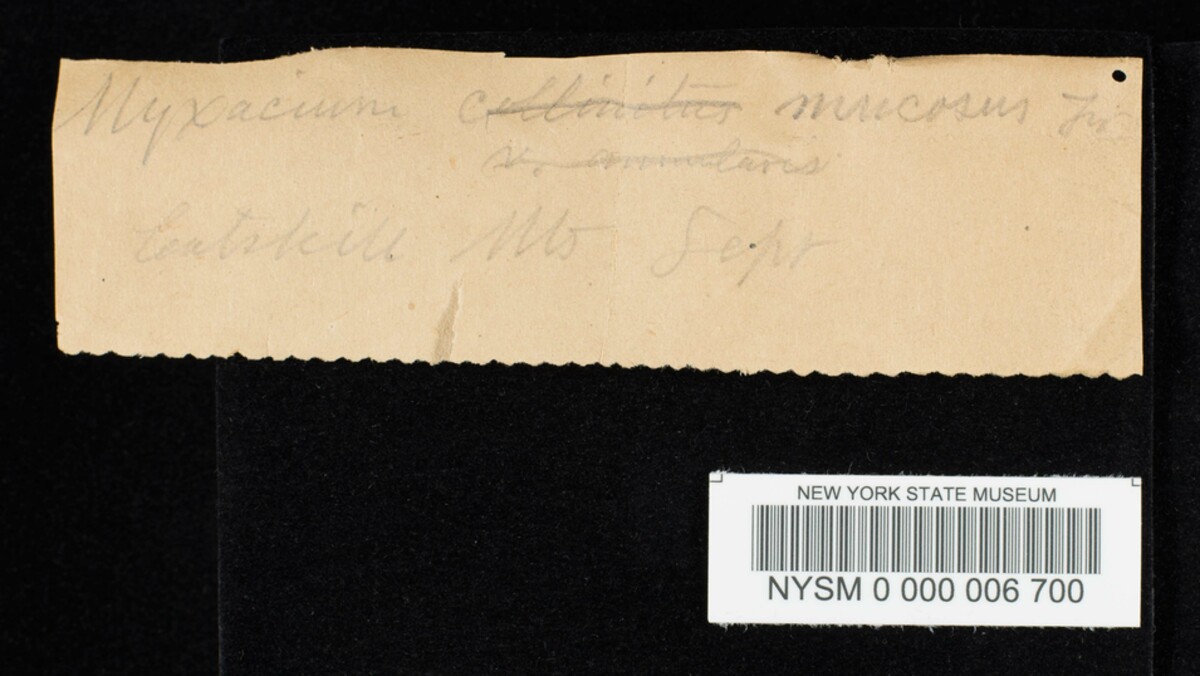 Myxacium collinitus mucosus Fr
v. annulatus
Catskill Mts Sept
NEW YORK STATE MUSEUM
NYSM 0 000 006 700